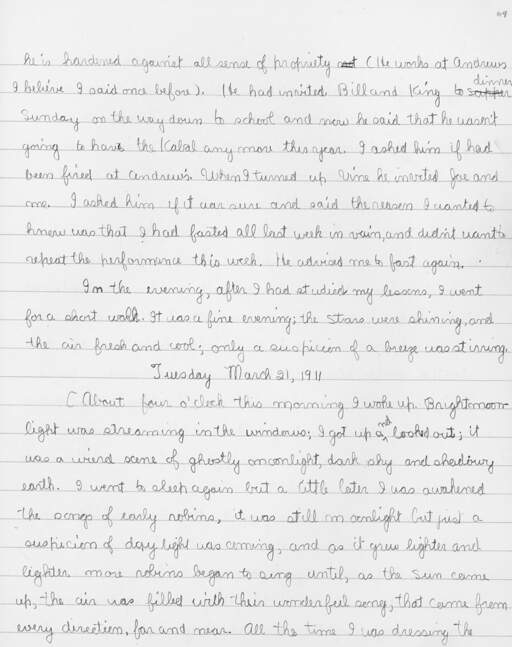 69
he is hardened against all sense of propriety (He works at Andrews
I believe I said once before). He had invited Bill and King to dinner
Sunday on the way down to school and now he said that he wasn't
going to have the Kabal any more this year. I asked him if had
been fired at Andrews. When I turned up Vine he invited Joe and
me. I asked him if it was sure and said the reason I wanted to
know was that I had fasted all last week in vain, and didn't want to
repeat the performance this week. He advised me to fast again.
In the evening, after I had studied my lessons, I went
for a short walk. It was a fine evening; the stars were shining, and
the air fresh and cool; only a suspicion of a breeze was stirring.
Tuesday March 21, 1911
(About four o'clock this morning I woke up. Bright moon-
light was streaming in the windows; I got up and looked out; it
was a wierd scene of ghostly moonlight, dark sky and shadowy
earth. I went to sleep again but a little later I was awakened
the songs of early robins, it was still moonlight but just a
suspicion of day light was coming, and as it grew lighter and
lighter more robins began to sing until, as the sun came
up, the air was filled with their wonderful song, that came from
every direction, far and near. All the time I was dressing the